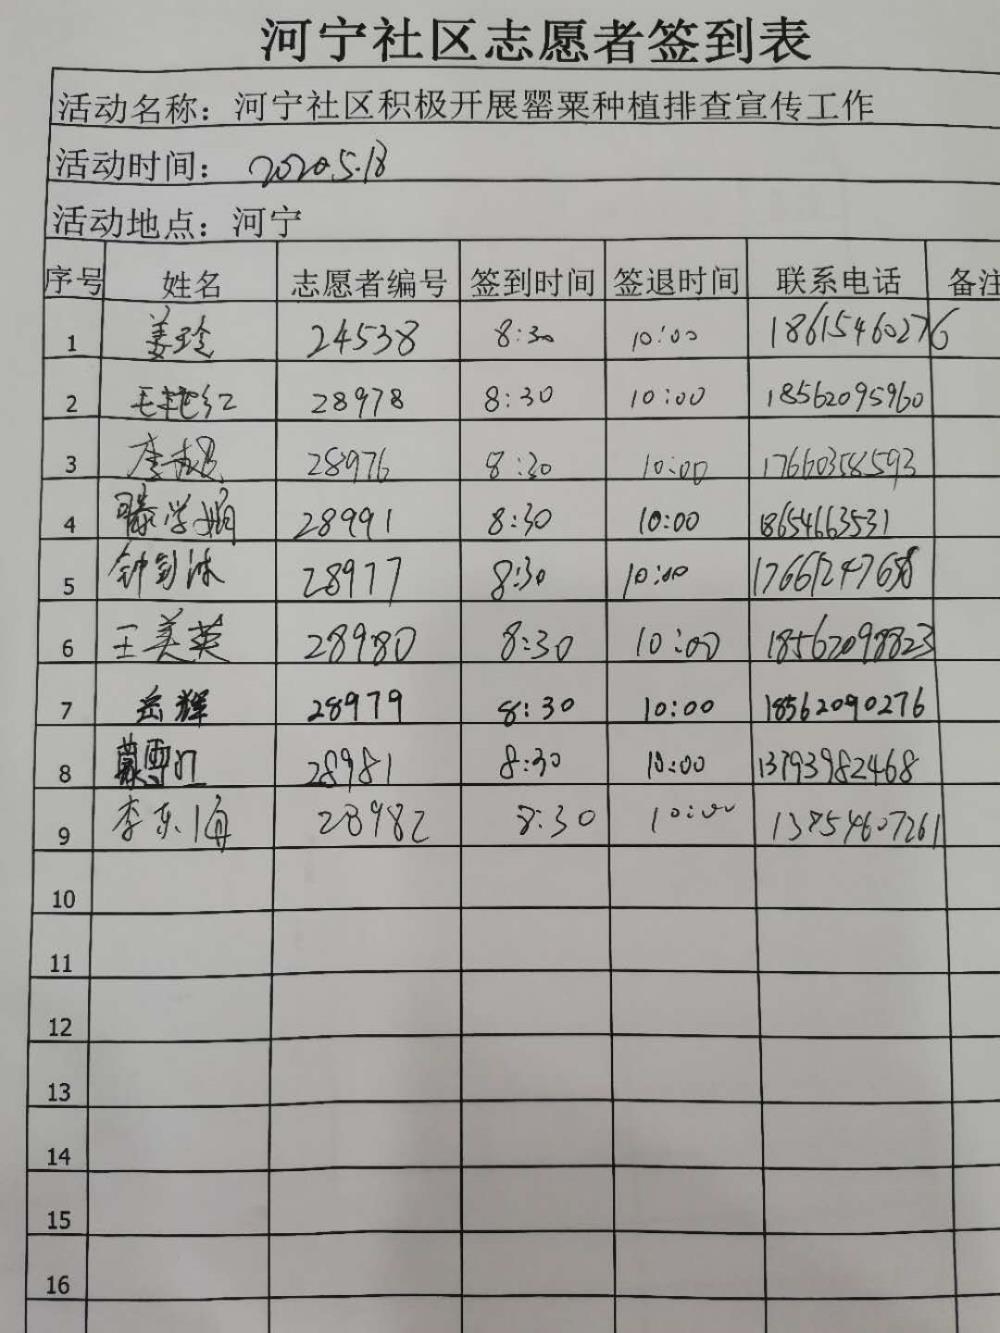 河宁社区志愿者签到表
活动名称：河宁社区积极开展罂粟种植排查宣传工作
活动时间：2020.5.18
活动地点：河宁
序号 姓名 志愿者编号 签到时间 签退时间 联系电话 备注
1 姜玲 24538 8:30 10:00 18615460276
2 毛艳红 28978 8:30 10:00 18562095960
3 28976 8:30 10:00 17660358593
4 滕学娟 28991 8:30 10:00 18654663531
5 28977 8:30 10:00
6 王美英 28980 8:30 10:00 18562098823
7 岳辉 28979 8:30 10:00 18562090276
8 28981 8:30 10:00 13793982468
9 李东海 28982 8:30 10:00 13854607261
10
11
12
13
14
15
16